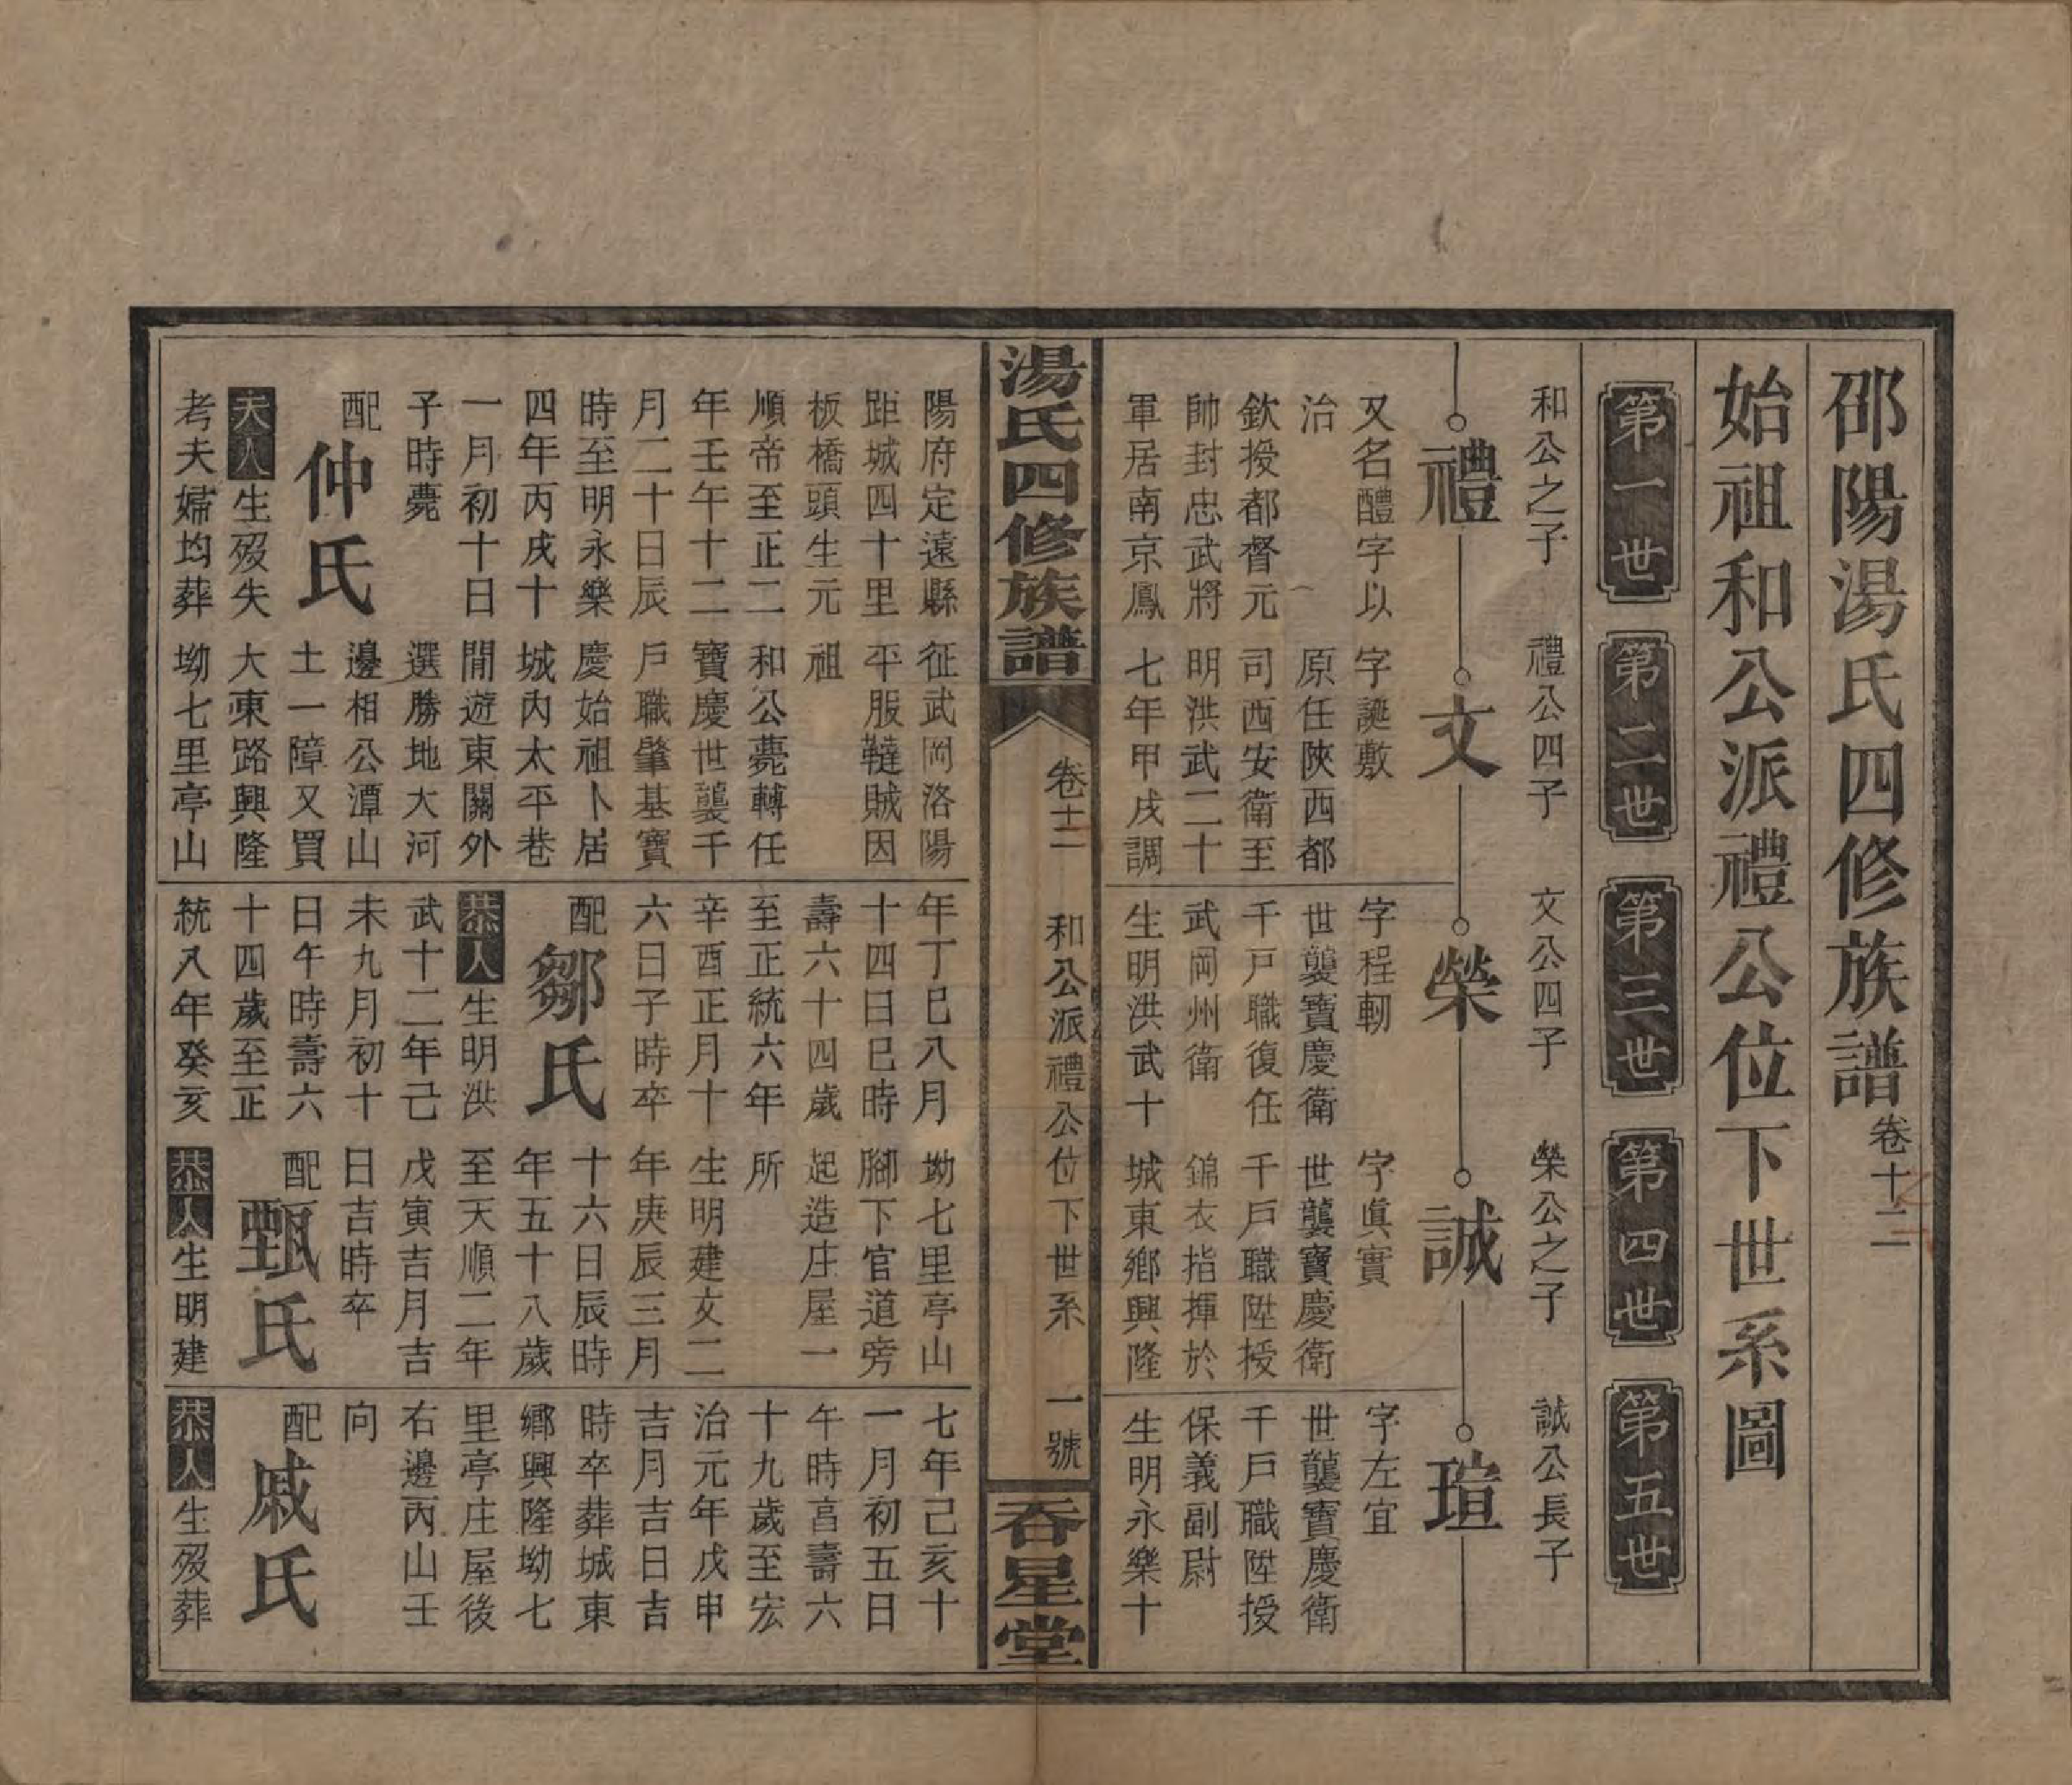 邵陽湯氏四修族譜卷十二
始祖和公派禮公位下世系圖
第一世
第二世
第三世
第四世
第五世
和公之子
禮公四子
文公四子
榮公之子
誠公長子
禮
文
榮
誠
瑄
又名醴字以
治
欽授都督元
帥封忠武將
軍居南京鳳
陽府定遠縣
距城四十里
板橋頭生元
順帝至正二
年壬午十二
月二十日辰
時至明永樂
四年丙戌十
一月初十日
子時薨
配仲氏
夫人生歿失
考夫婦均葬
字誕敷
原任陝西都
司西安衛至
明洪武二十
七年甲戌調
征武岡洛陽
平服韃賊因
祖
和公薨轉任
寶慶世襲千
戶職肇基寶
慶始祖卜居
城內太平巷
閒遊東關外
選勝地大河
邊相公潭山
土一障又買
大東路興隆
坳七里亭山
字程軔
世襲寶慶衛
千戶職復任
武岡州衛
生明洪武十
年丁巳八月
十四日巳時
壽六十四歲
至正統六年
辛酉正月十
六日子時卒
配鄒氏
恭人生明洪
武十二年己
未九月初十
日午時壽六
十四歲至正
統八年癸亥
字眞實
世襲寶慶衛
千戶職陞授
錦衣指揮於
城東鄉興隆
坳七里亭山
腳下官道旁
起造庄屋一
所
生明建文二
年庚辰三月
十六日辰時
年五十八歲
至天順二年
戊寅吉月吉
日吉時卒
配甄氏
恭人生明建
字左宜
世襲寶慶衛
千戶職陞授
保義副尉
生明永樂十
七年己亥十
一月初五日
午時亯壽六
十九歲至宏
治元年戊申
吉月吉日吉
時卒葬城東
鄉興隆坳七
里亭庄屋後
右邊丙山壬
向
配戚氏
恭人生歿葬
湯氏四修族譜
卷十二
和公派禮公位下世系
一號
吞星堂